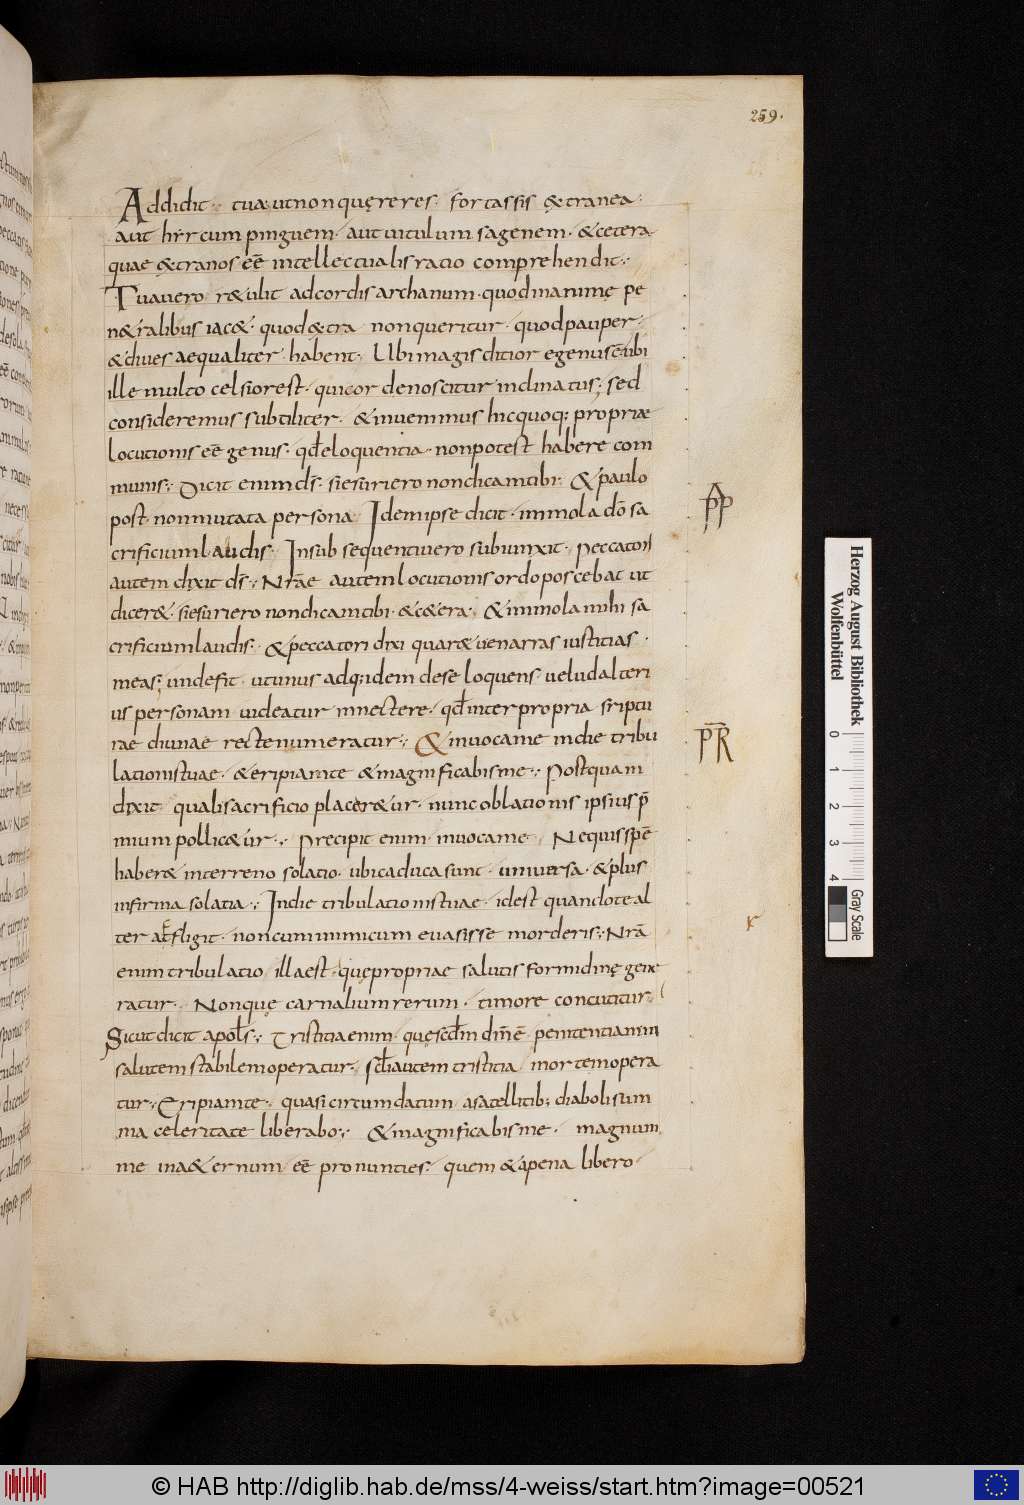 259.
Addidit. tua ut non quęreres. fortassis &tranea.
aut hircum pinguem. aut uitulum sagenem. &cetera
quae &tranos eē intellectualis ratio comprehendit.
Tua uero r&ulit ad cordis archanum. quod in animę pe
n&ralibus iac&. quod &tra non queritur. quod pauper.
& diues aequaliter habent. Ubi magis ditior egenus ē. ubi
ille multo celsior est. qui cor denoscitur inclinatus; sed
consideremus subtiliter. & inuenimus hic quoq; propriae
locutionis eē genus. qđ eloquentia. non potest habere com
munis. Dicit enim dś. si esuriero non dicam tibi. & paulo
post. non mutata persona Idem ipse dicit. immola dō sa
crificium laudis. In subsequenti uero subiunxit. peccatori
autem dixit dś. Nrāe autem locutionis ordo poscebat ut
dicer&. si esuriero non dicam tibi. & c&era. & immola mihi sa
crificium laudis. & peccatori dixi quar& u enarras iustitias.
meas; unde fit. ut unus adq; idem de se loquens uelud alteri
us personam uideatur innectere. qđ inter propria scriptu
rae diuinae recte numeratur. & inuoca me in die tribu
lationis tuae. & eripiam te & magnificabis me. Postquam
dixit quali sacrificio placer&ur. nunc oblationis ipsius p̄
mium pollic&ur. Precipit enim. inuoca me. Ne quis spē
haber& in terreno solatio. ubi caduca sunt. uniuersa. & plus
infirma solatia. In die tribulationis tuae. id est quando te al
ter affligit. non cum inimicum euasisse morderis. Nrā
enim tribulatio illa est. quę propriae salutis formidinę gene
ratur. Non quę carnalium rerum. timore concutitur.
Sicut dicit apoƚs. Tristitia enim. quę scđm dm̄ ē. penitentiam in
salutem stabilem operatur. scƚi autem tristitia mortem opera
tur. Eripiam te. quasi circumdatum a satellitib; diaboli sum
ma celeritate liberabo. & magnificabis me. magnum
me in a&ernum eē pronunties. quem & a pena libero.
PP
PR
Herzog August Bibliothek
Wolfenbüttel
0 1 2 3 4
Gray Scale
© HAB http://diglib.hab.de/mss/4-weiss/start.htm?image=00521